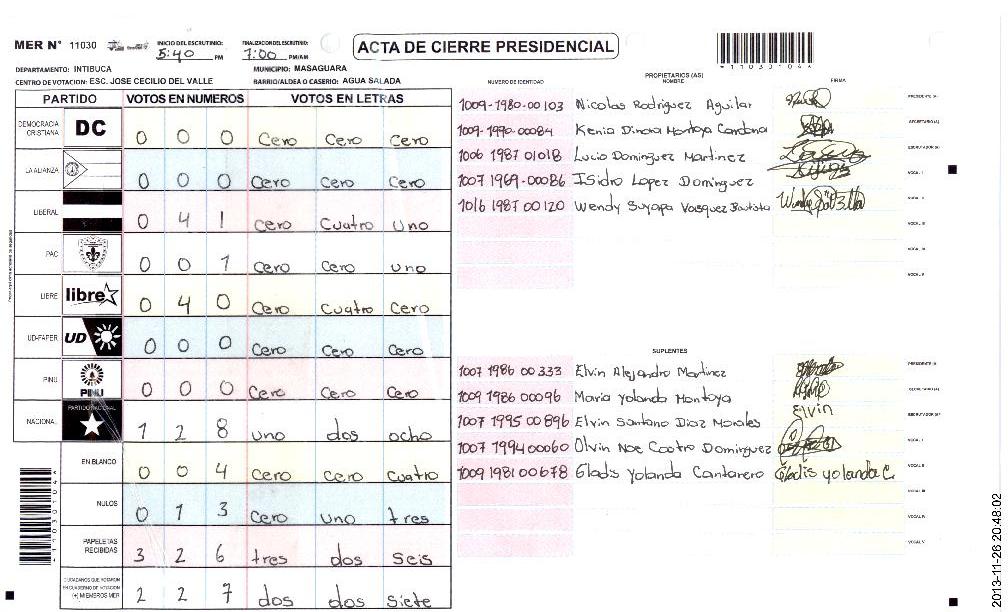 MER N° 11030
INICIO DEL ESCRUTINIO: 5:40 PM
FINALIZACION DEL ESCRUTINIO: 7:00 PM/AM
ACTA DE CIERRE PRESIDENCIAL
DEPARTAMENTO: INTIBUCA
MUNICIPIO: MASAGUARA
CENTRO DE VOTACION: ESC. JOSE CECILIO DEL VALLE
BARRIO/ALDEA O CASERIO: AGUA SALADA
PARTIDO VOTOS EN NUMEROS VOTOS EN LETRAS
DEMOCRACIA CRISTIANA DC 0 0 0 Cero Cero Cero
LA ALIANZA 0 0 0 Cero Cero Cero
LIBERAL 0 4 1 Cero Cuatro Uno
PAC 0 0 1 Cero Cero uno
LIBRE libre 0 4 0 Cero Cuatro Cero
UD-FAPER UD 0 0 0 Cero Cero Cero
PINU PINU 0 0 0 Cero Cero Cero
NACIONAL PARTIDO NACIONAL 1 2 8 uno dos ocho
EN BLANCO 0 0 4 Cero Cero Cuatro
NULOS 0 1 3 Cero uno tres
PAPELETAS RECIBIDAS 3 2 6 tres dos seis
CIUDADANOS QUE VOTARON EN CUADERNO DE VOTACION (+) MIEMBROS MER 2 2 7 dos dos siete
NUMERO DE IDENTIDAD
PROPIETARIOS (AS)
NOMBRE
FIRMA
11030104
1009-1980-00103 Nicolas Rodriguez Aguilar PRESIDENTE (A)
1009-1990-00084 Kenia Dinora Montoya Cardona SECRETARIO (A)
1006 1987 01018 Lucio Dominguez Martinez ESCRUTADOR (A)
1007 1969-00086 Isidro Lopez Dominguez VOCAL I
1016 1987 00120 Wendy Suyapa Vasquez Bautista VOCAL II
VOCAL III
VOCAL IV
VOCAL V
SUPLENTES
1007 1986 00333 Elvin Alejandro Martinez PRESIDENTE (A)
1009 1986 00096 Maria Yolanda Montoya SECRETARIO (A)
1007 1995 00896 Elvin Santano Diaz Morales Elvin ESCRUTADOR (A)
1007 1994 00060 Olvin Noe Castro Dominguez VOCAL I
1009 1981 00678 Gladis Yolanda Cantarero Gladis yolanda C. VOCAL II
VOCAL III
VOCAL IV
VOCAL V
11030104
2013-11-26 20:48:02